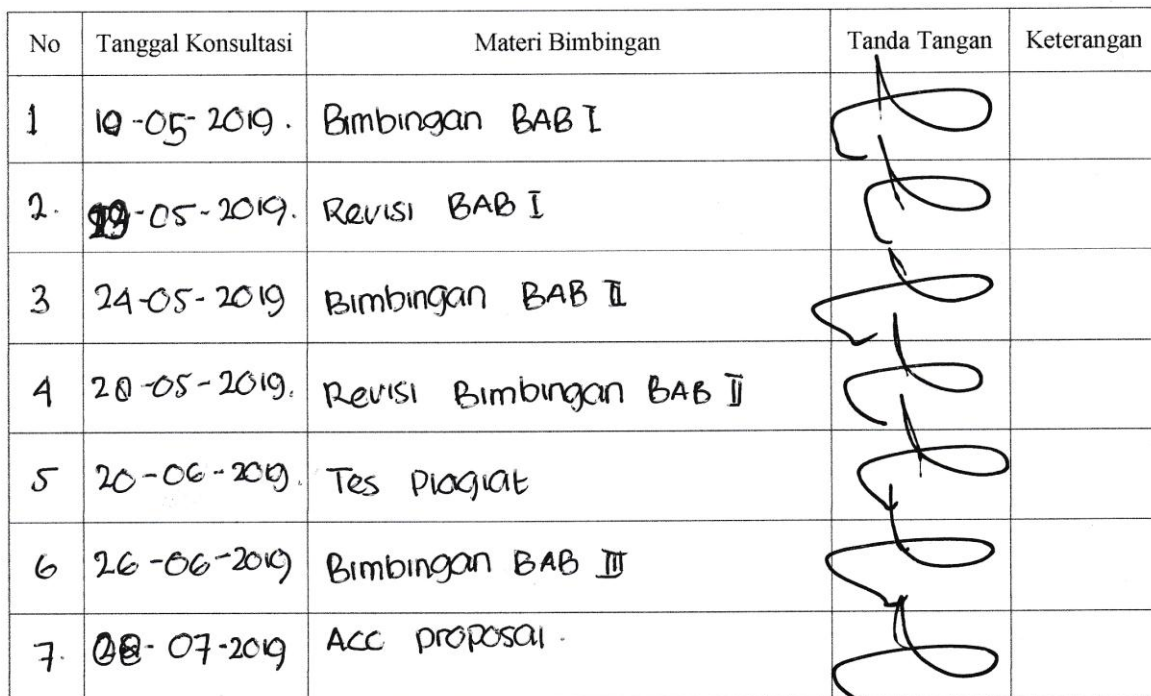 No Tanggal Konsultasi Materi Bimbingan Tanda Tangan Keterangan
1 10-05-2019. Bimbingan BAB I
2. -05-2019. Revisi BAB I
3 24-05-2019 Bimbingan BAB II
4 28-05-2019. Revisi Bimbingan BAB II
5 20-06-2019. Tes Plagiat
6 26-06-2019 Bimbingan BAB III
7. -07-2019 Acc proposal.